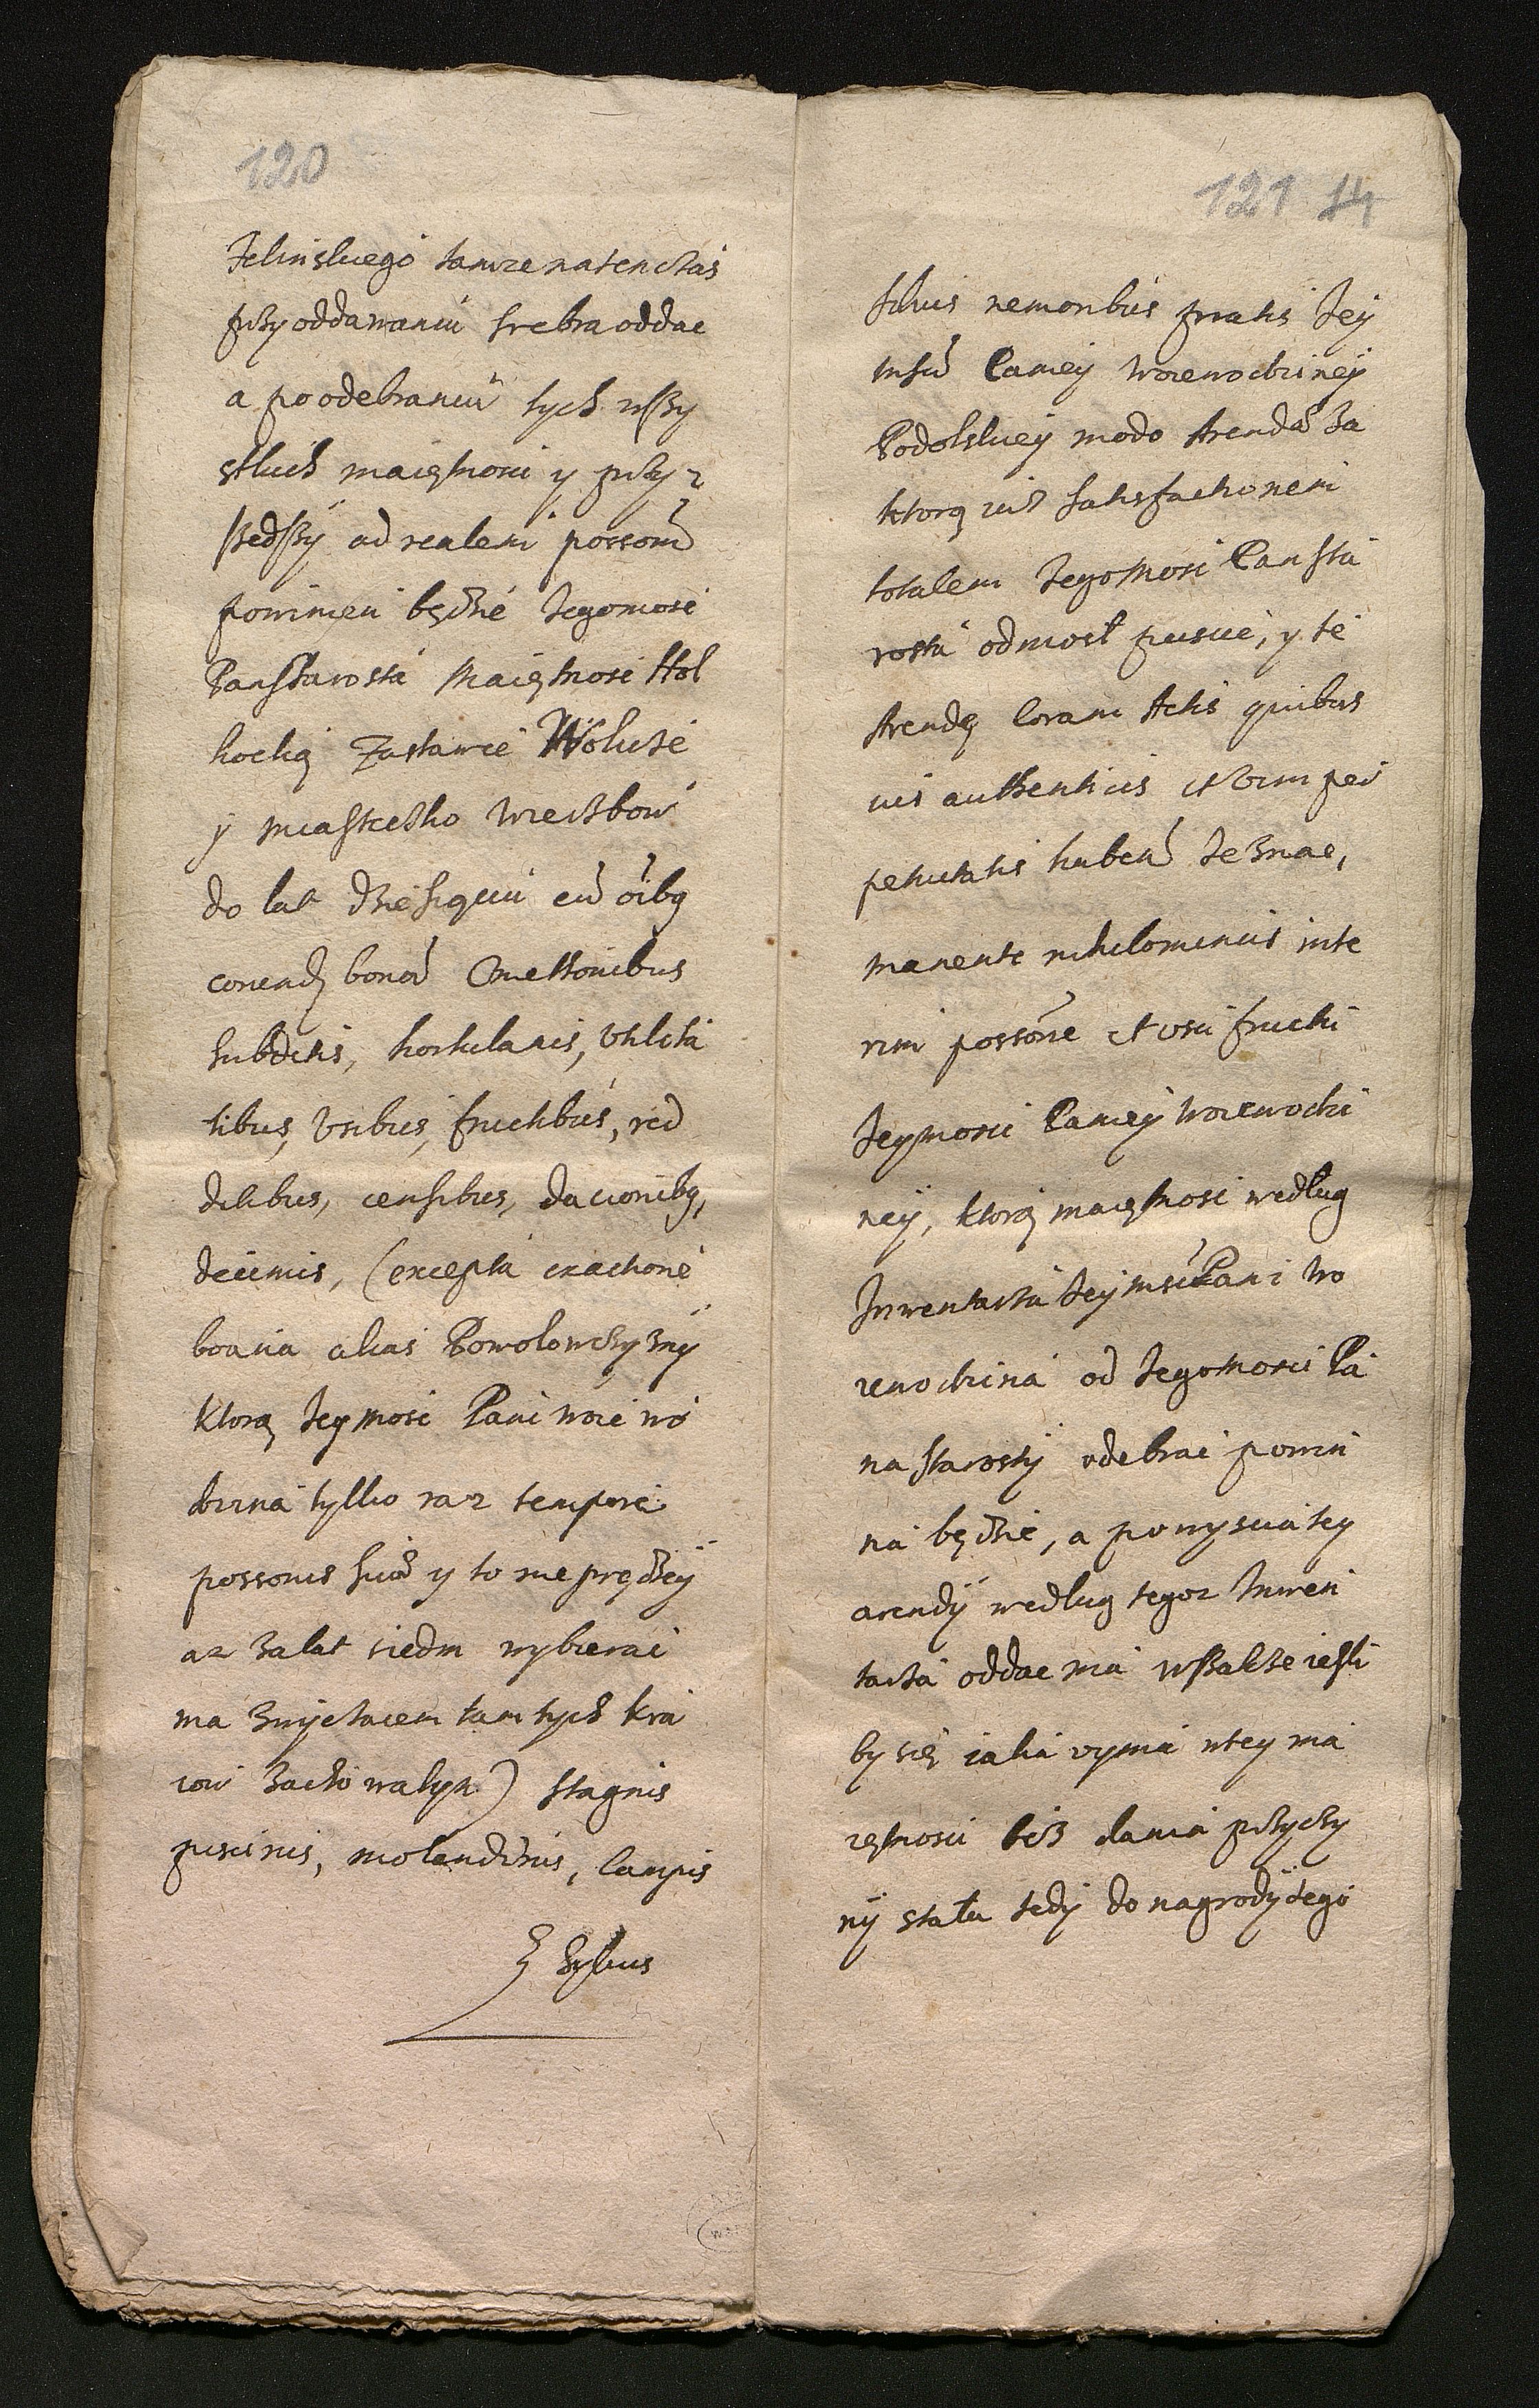 120
Jelinskiego tamze natenczas
przy oddawaniu srebra oddac
a po odebraniu tych wszy
stkich maiętnosci y przy z
szedszy ad realem possom
powinien będzie Jegomosc
Pan Starosta Maiętnosc Hol
hockią Zastawie Wolucze
y Miasteczko Wczesbow
do lat dziesięciu cu oibg
conend bonor Cmethonibus
subditis, hortulanis, utilita
tibus, Usibus, fructibus, red
ditibus, censibus, dacionibg,
decimis, (excepta exactione
boaria alias Powolowczyzny
ktorą Jey Mosc Pani woiewo
dzina tylko raz tempore
possonis suae y to nie prędzey
az za lat siedm wybierac
ma zwyczaiem tamtych kra
iow zachowalym) stagnis
piscinis, molendinis, Campis
Sylvis
121 14
silvis nemoribus pratis Jey
Mscu Paniey Woiewodziney
Podolskiey modo Arendae Za
ktorą iuz satisfactionem
totalem Jegomosc Pan Sta
rosta odniosł pusci, y te
Arendę Coram Actis quibus
vis authenticis et Vim per
petuitatis haben Zeznac,
manente nihilominus inte
rim possone et usu fructu
Jeymosci Paniey Woiewodzi
ney, ktorą maiętnosc według
Inwentarza Jeymsc Pani Wo
iewodzina od Jegomosci Pa
na Starosty odebrac powin
na będzie, a po wysciu tey
arendy według tegoz Inwen
tarza oddac ma wszakze iesli
by się iaka uyma w tey ma
iętnosci bez dania przyczy
ny stała tedy do nagrody tego